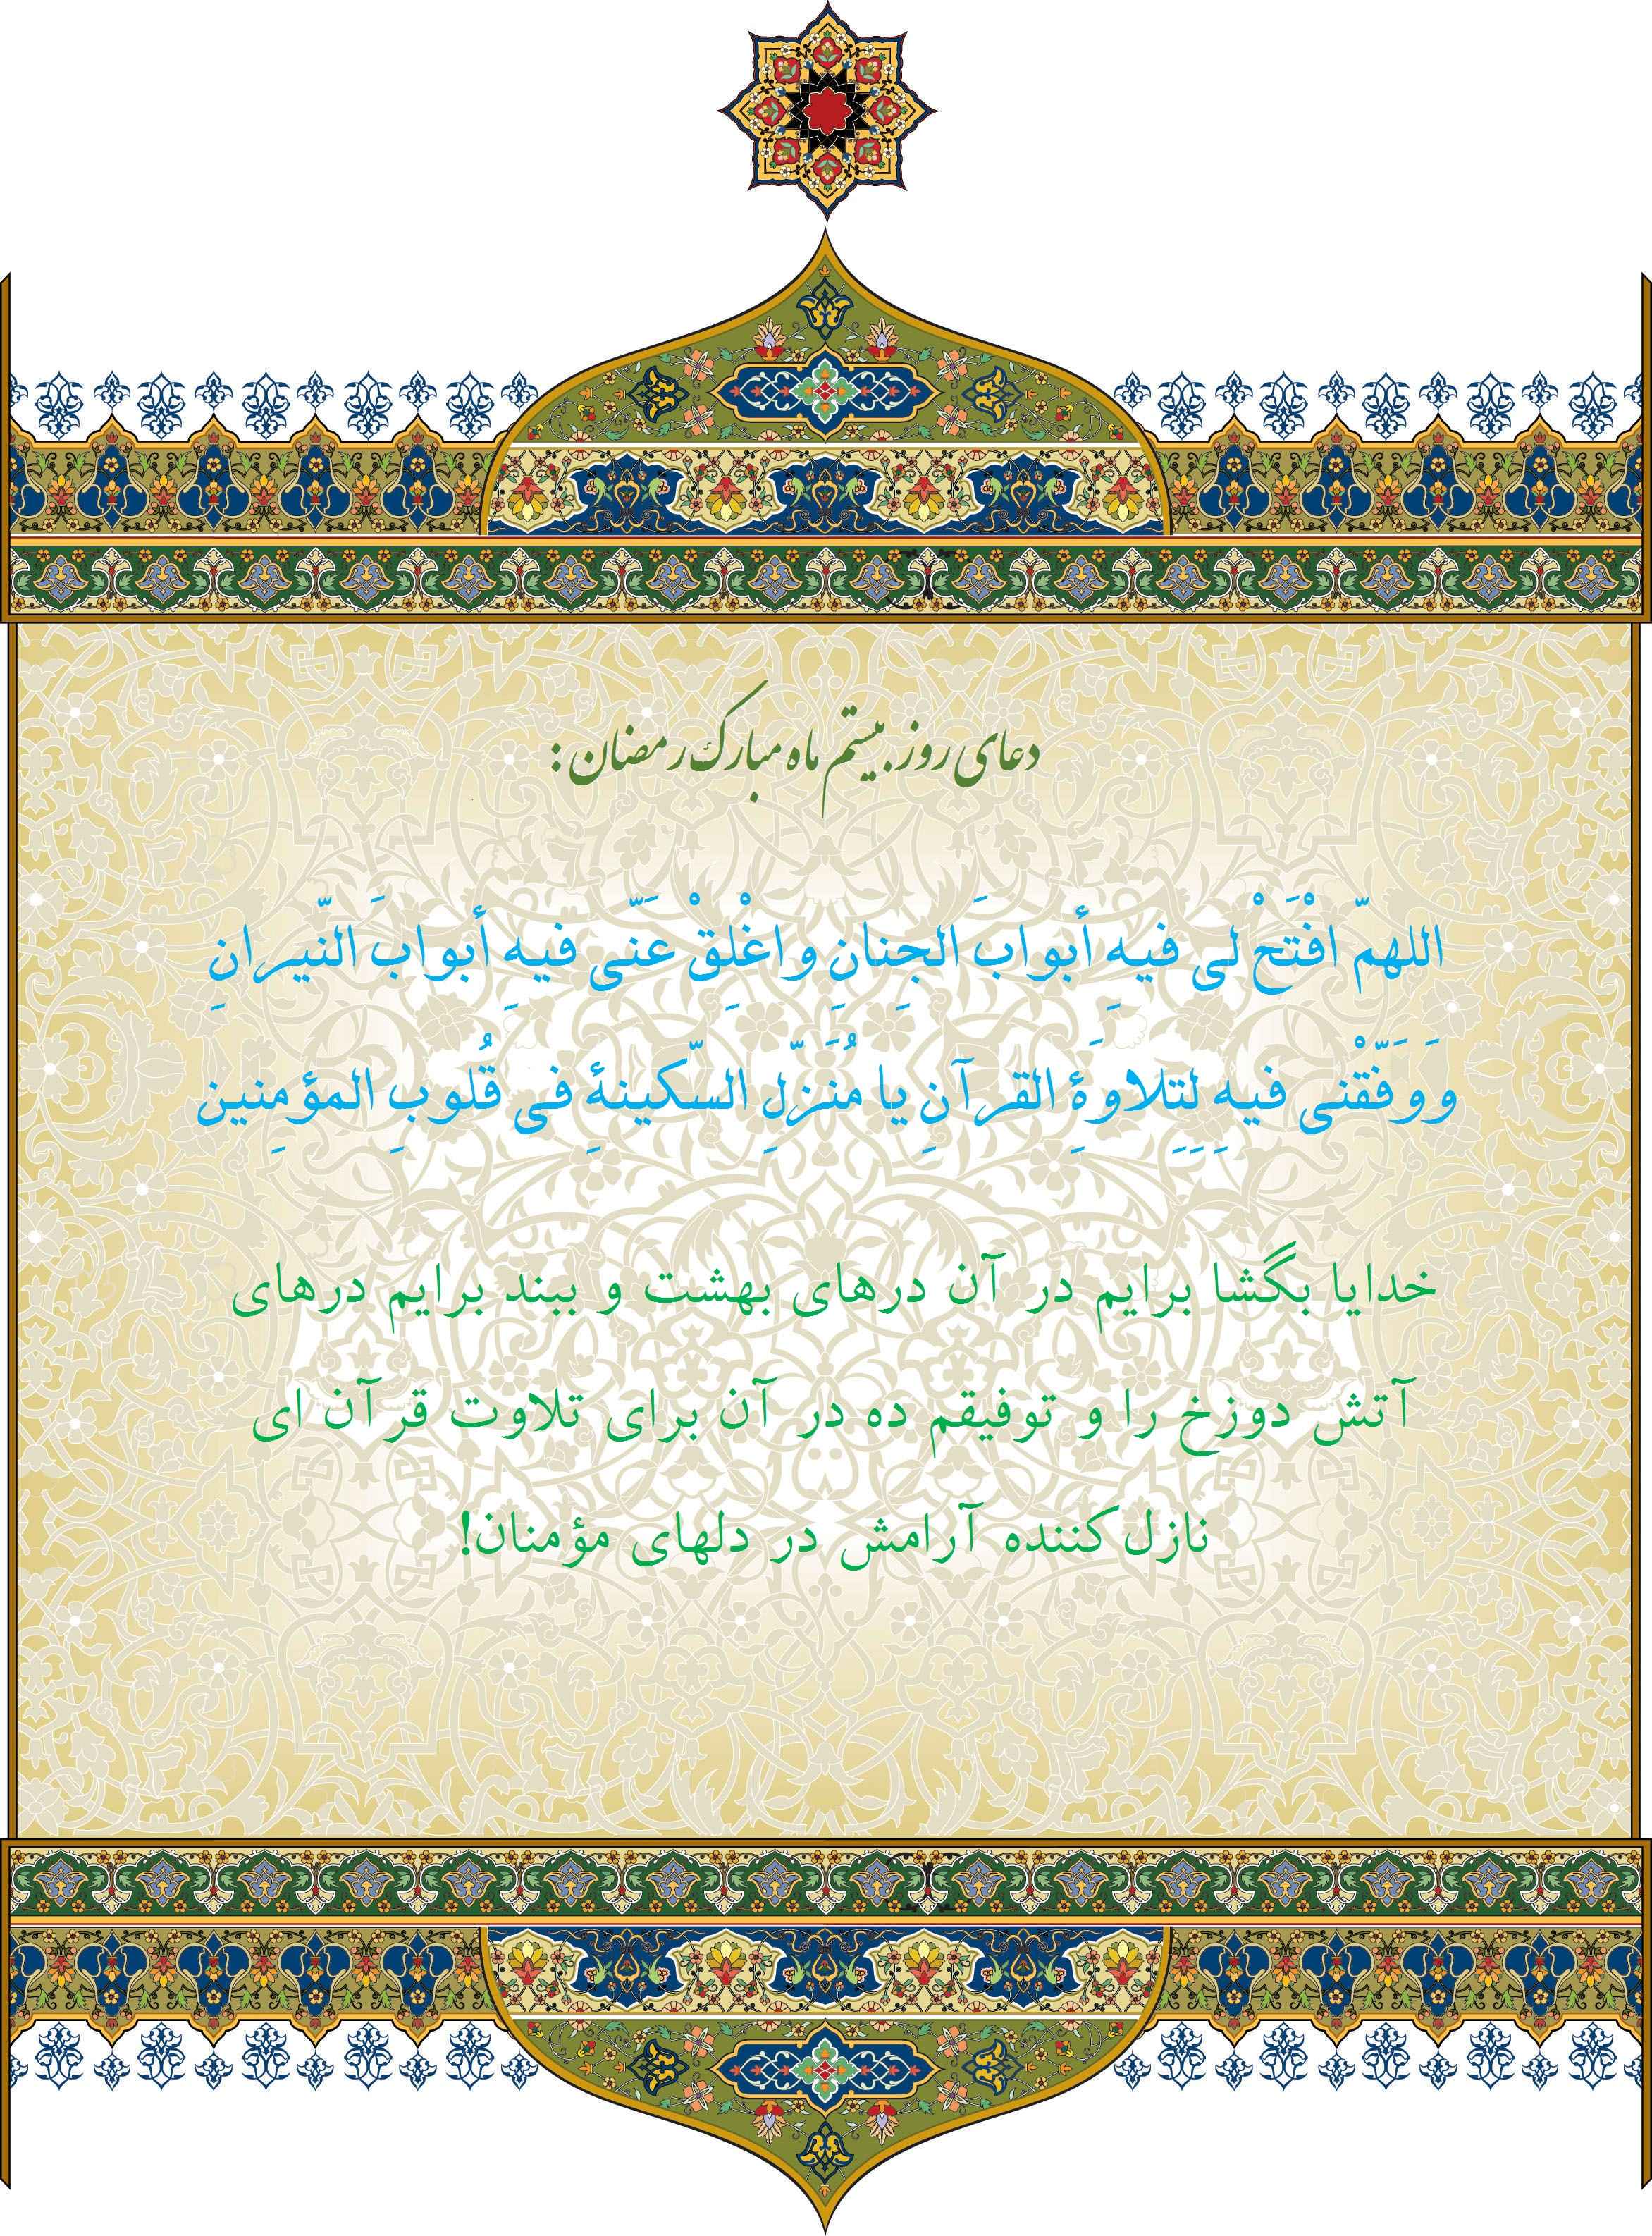 دعای روز بیستم ماه مبارک رمضان:
اللهمّ افْتَحْ لی فیهِ أبوابَ الجِنانِ واغْلِقْ عَنّی فیهِ أبوابَ النّیرانِ
وَوَفّقْنی فیهِ لِتِلاوَةِ القرآنِ یا مُنَزّلِ السّکینةِ فی قُلوبِ المؤمِنین
خدایا بگشا برایم در آن درهای بهشت و ببند برایم درهای
آتش دوزخ را و توفیقم ده در آن برای تلاوت قرآن ای
نازل کننده آرامش در دلهای مؤمنان!